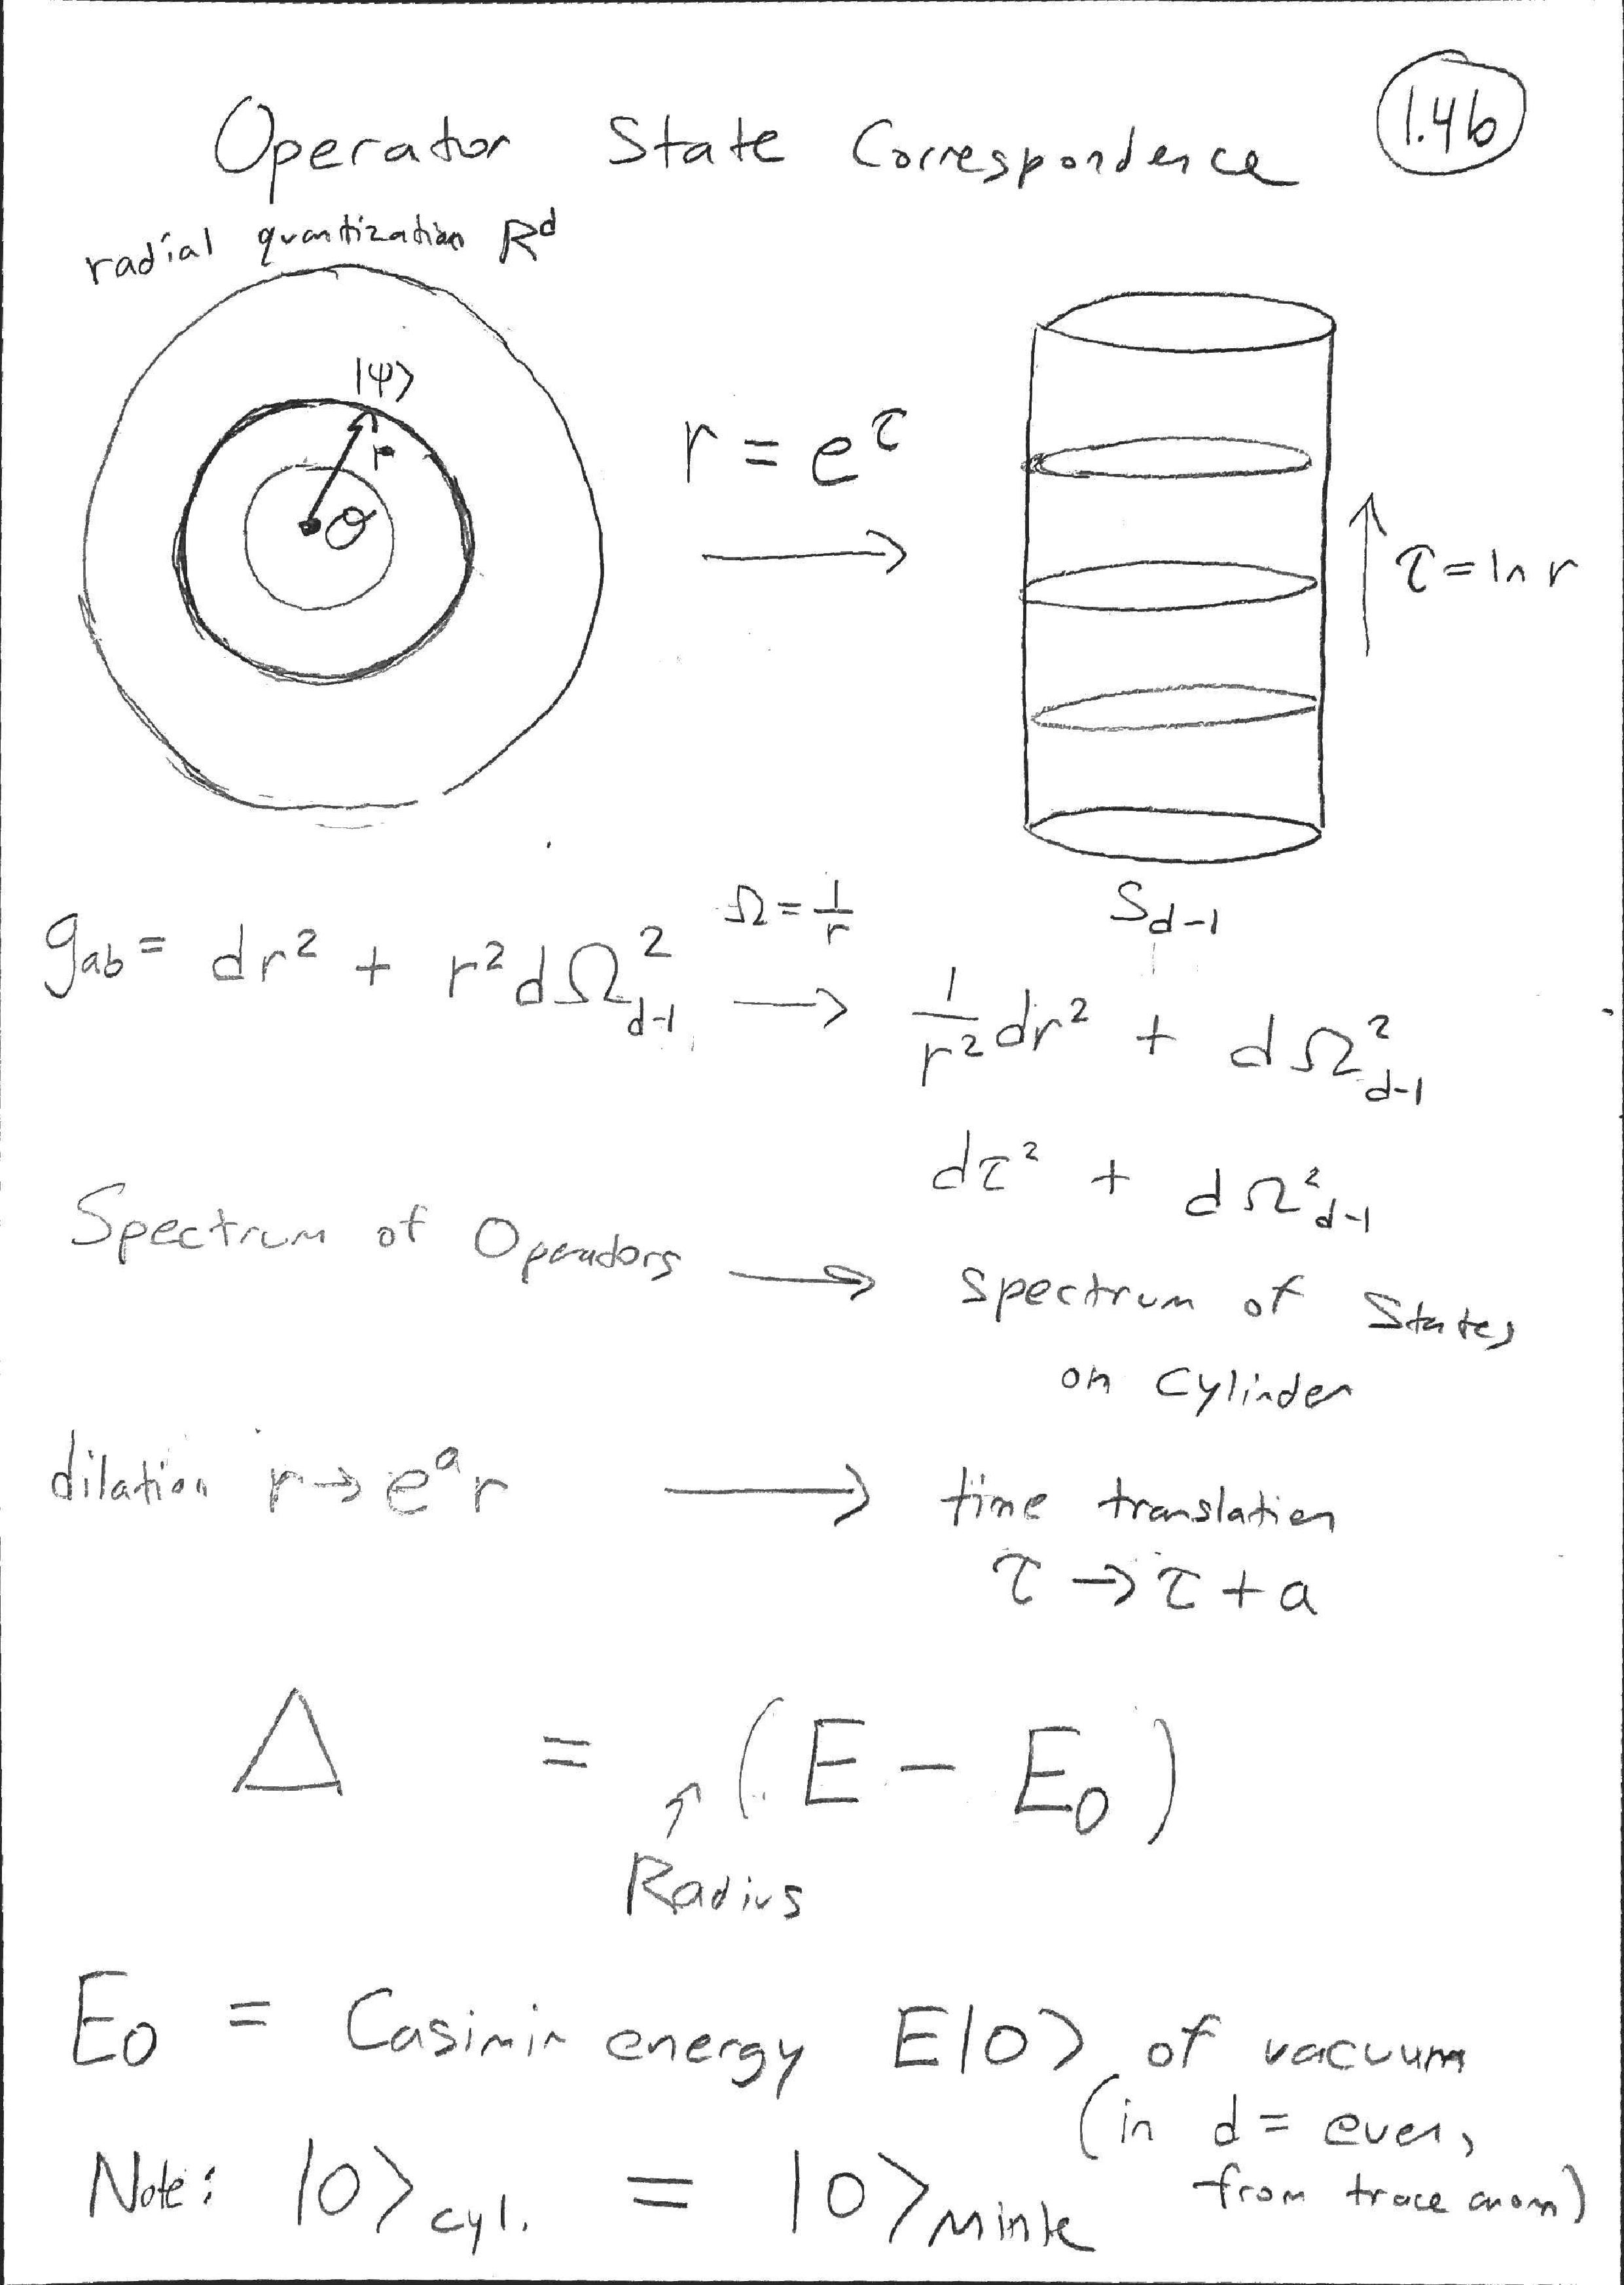 1.4b
Operator State Correspondence
radial quantization R^d
|ψ⟩
r
O
r = e^τ
τ = ln r
S_{d-1}
g_{ab} = dr² + r² dΩ²_{d-1} Ω = 1/r → 1/r² dr² + dΩ²_{d-1}
dτ² + dΩ²_{d-1}
Spectrum of Operators → spectrum of States
on cylinder
dilation r → e^a r → time translation
τ → τ + a
Δ = (E − E₀)
↑
Radius
E₀ = Casimir energy E|0⟩ of vacuum
(in d = even,
from trace anom)
Note: |0⟩_{cyl.} = |0⟩_{Mink}